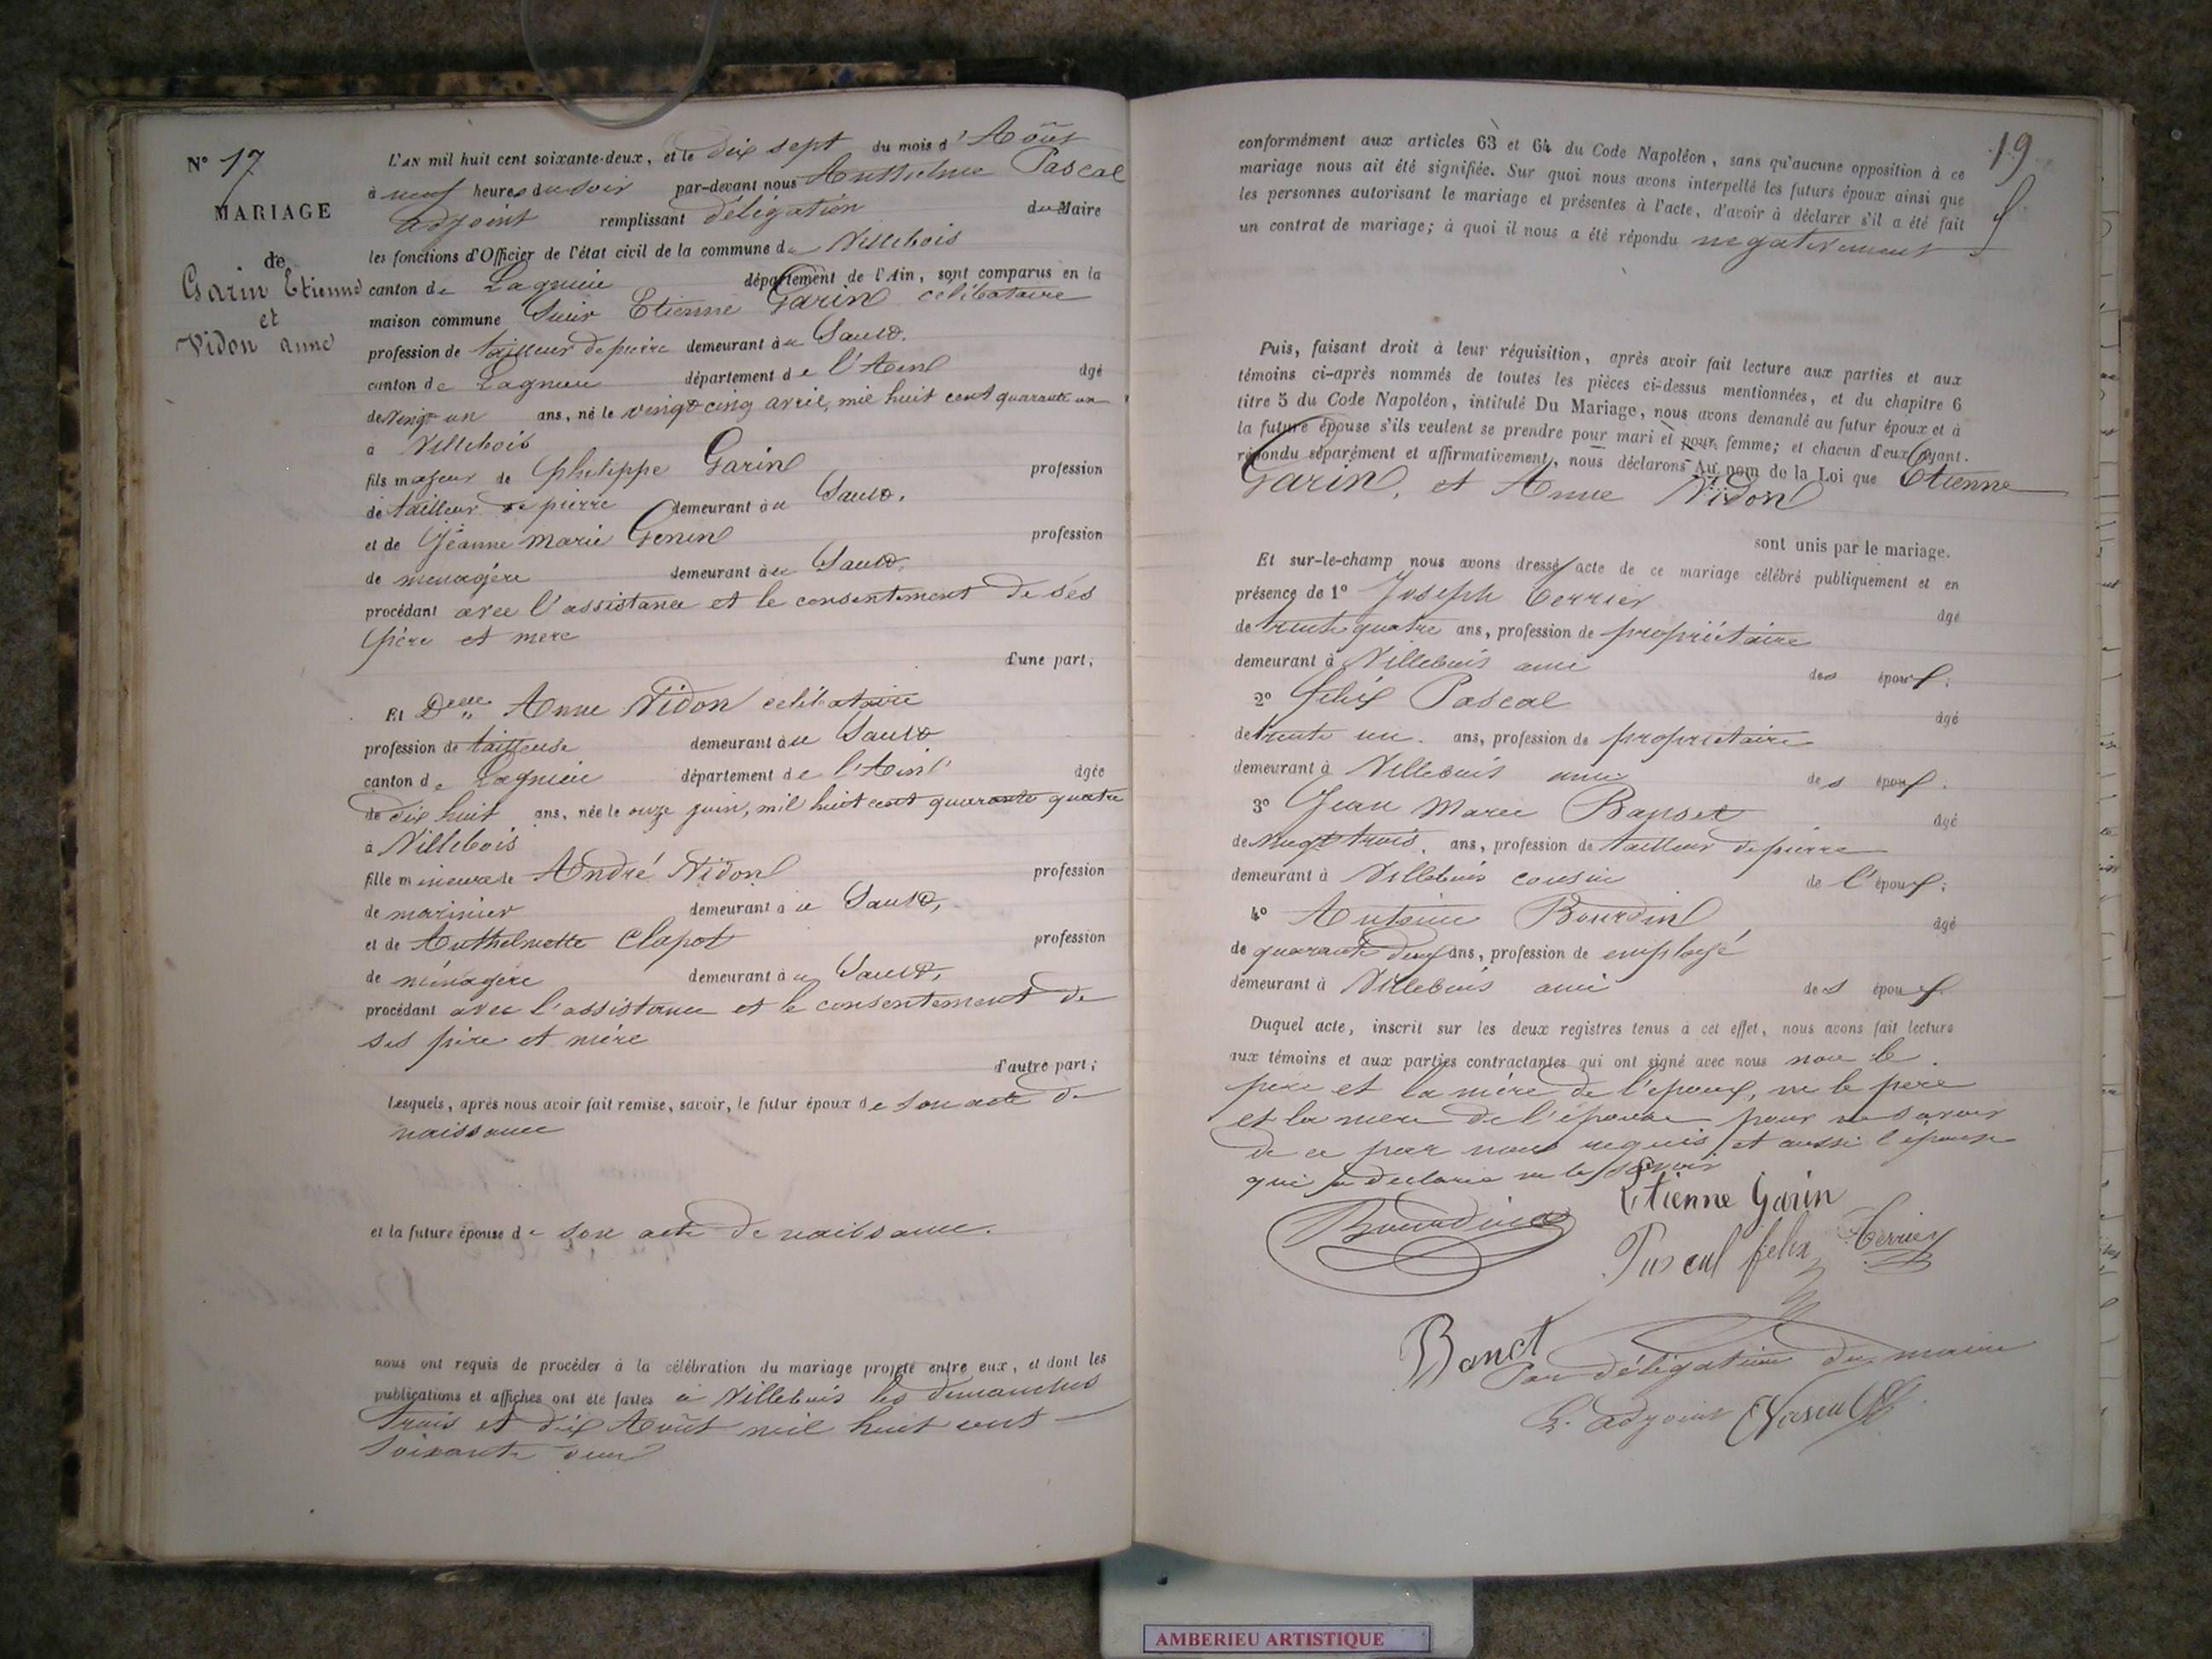 N° 17
MARIAGE
de
Garin Etienne
et
Vidon anne
L'AN mil huit cent soixante-deux, et le dix sept du mois d'Août
à neuf heures du soir par-devant nous Anthelme Pascal
adjoint remplissant déligation du Maire
les fonctions d'Officier de l'état civil de la commune de Villebois
canton de Lagnieu département de l'Ain, sont comparus en la
maison commune Sieur Etienne Garin celibataire
profession de tailleur de pierre demeurant à Sault
canton de Lagnieu département de l'Ain âgé
de vingt un ans, né le vingt cinq avril, mil huit cent quarante un
à Villebois
fils majeur de Philippe Garin profession
de tailleur de pierre demeurant à Sault,
et de Jeanne Marie Genin profession
de menagère demeurant à Sault,
procédant avec l'assistance et le consentement de ses
père et mere
d'une part;
Et Delle Anne Vidon celibataire
profession de tailleuse demeurant à Sault
canton de Lagnieu département de l'Ain âgée
de dix huit ans, née le onze juin, mil huit cent quarante quatre
à Villebois
fille mineure de André Vidon profession
de marinier demeurant à Sault,
et de Anthelmette Clapot profession
de ménagère demeurant à Sault,
procédant avec l'assistance et le consentement de
ses père et mère
d'autre part;
Lesquels, après nous avoir fait remise, savoir, le futur époux de son acte de
naissance
et la future épouse de son acte de naissance.
nous ont requis de procéder à la célébration du mariage projeté entre eux, et dont les
publications et affiches ont été faites à Villebois les dimanches
trois et dix Août mil huit cent
soixante deux
19
conformément aux articles 63 et 64 du Code Napoléon, sans qu'aucune opposition à ce
mariage nous ait été signifiée. Sur quoi nous avons interpellé les futurs époux ainsi que
les personnes autorisant le mariage et présentes à l'acte, d'avoir à déclarer s'il a été fait
un contrat de mariage; à quoi il nous a été répondu negativement
Puis, faisant droit à leur réquisition, après avoir fait lecture aux parties et aux
témoins ci-après nommés de toutes les pièces ci-dessus mentionnées, et du chapitre 6
titre 5 du Code Napoléon, intitulé Du Mariage, nous avons demandé au futur époux et à
la future épouse s'ils veulent se prendre pour mari et pour femme; et chacun d'eux ayant
répondu séparément et affirmativement, nous déclarons Au nom de la Loi que Etienne
Garin, et Anne Vidon
sont unis par le mariage.
Et sur-le-champ nous avons dressé acte de ce mariage célébré publiquement et en
présence de 1° Joseph Terrier âgé
de trente quatre ans, profession de propriétaire
demeurant à Villebois ami des époux;
2° Félix Pascal âgé
de trente un ans, profession de propriétaire
demeurant à Villebois ami des époux.
3° Jean Marie âgé
de vingt trois ans, profession de tailleur de pierre
demeurant à Villebois cousin de l'époux;
4° Antoine Bourdin âgé
de quarante deux ans, profession de employé
demeurant à Villebois ami des époux
Duquel acte, inscrit sur les deux registres tenus à cet effet, nous avons fait lecture
aux témoins et aux parties contractantes qui ont signé avec nous non le
père et la mère de l'époux, ni le père
et la mère de l'épouse pour ne savoir
de ce par nous requis et aussi l'épouse
qui a declaré ne le savoir
Etienne Garin
Bourdin
Pascal felix Terrier
Par déligation du maire
L. adjoint Pascal
AMBERIEU ARTISTIQUE